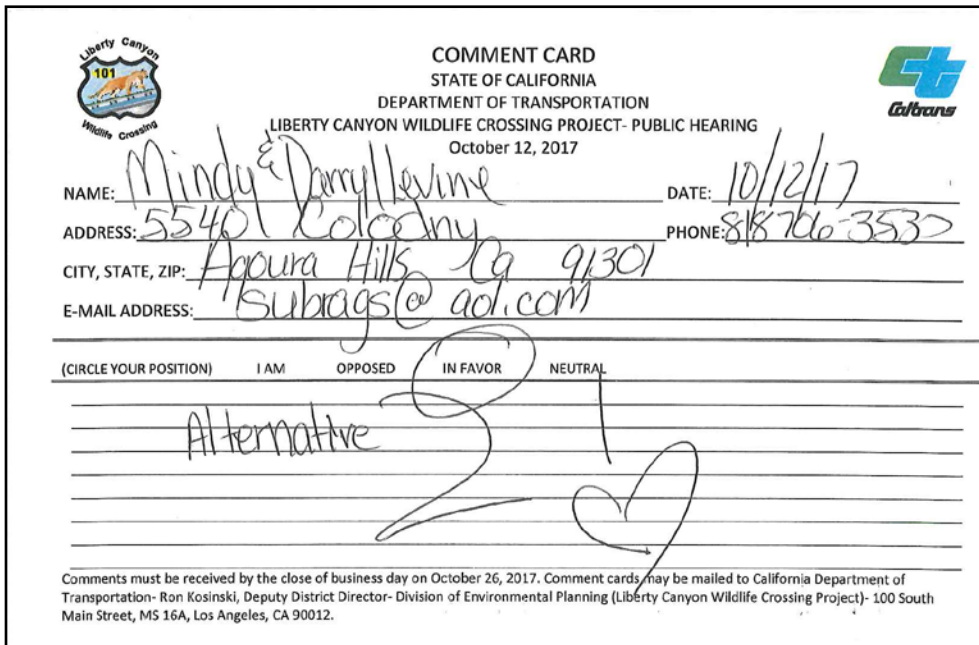 Liberty Canyon
101
Wildlife Crossing
COMMENT CARD
STATE OF CALIFORNIA
DEPARTMENT OF TRANSPORTATION
LIBERTY CANYON WILDLIFE CROSSING PROJECT- PUBLIC HEARING
October 12, 2017
Caltrans
NAME: Mindy & Darryl Levine DATE: 10/12/17
ADDRESS: Colodny PHONE: 818 706-3535
CITY, STATE, ZIP: Agoura Hills Ca 91301
E-MAIL ADDRESS: @aol.com
(CIRCLE YOUR POSITION) I AM OPPOSED IN FAVOR NEUTRAL
Alternative 2!
Comments must be received by the close of business day on October 26, 2017. Comment cards may be mailed to California Department of
Transportation- Ron Kosinski, Deputy District Director- Division of Environmental Planning (Liberty Canyon Wildlife Crossing Project)- 100 South
Main Street, MS 16A, Los Angeles, CA 90012.